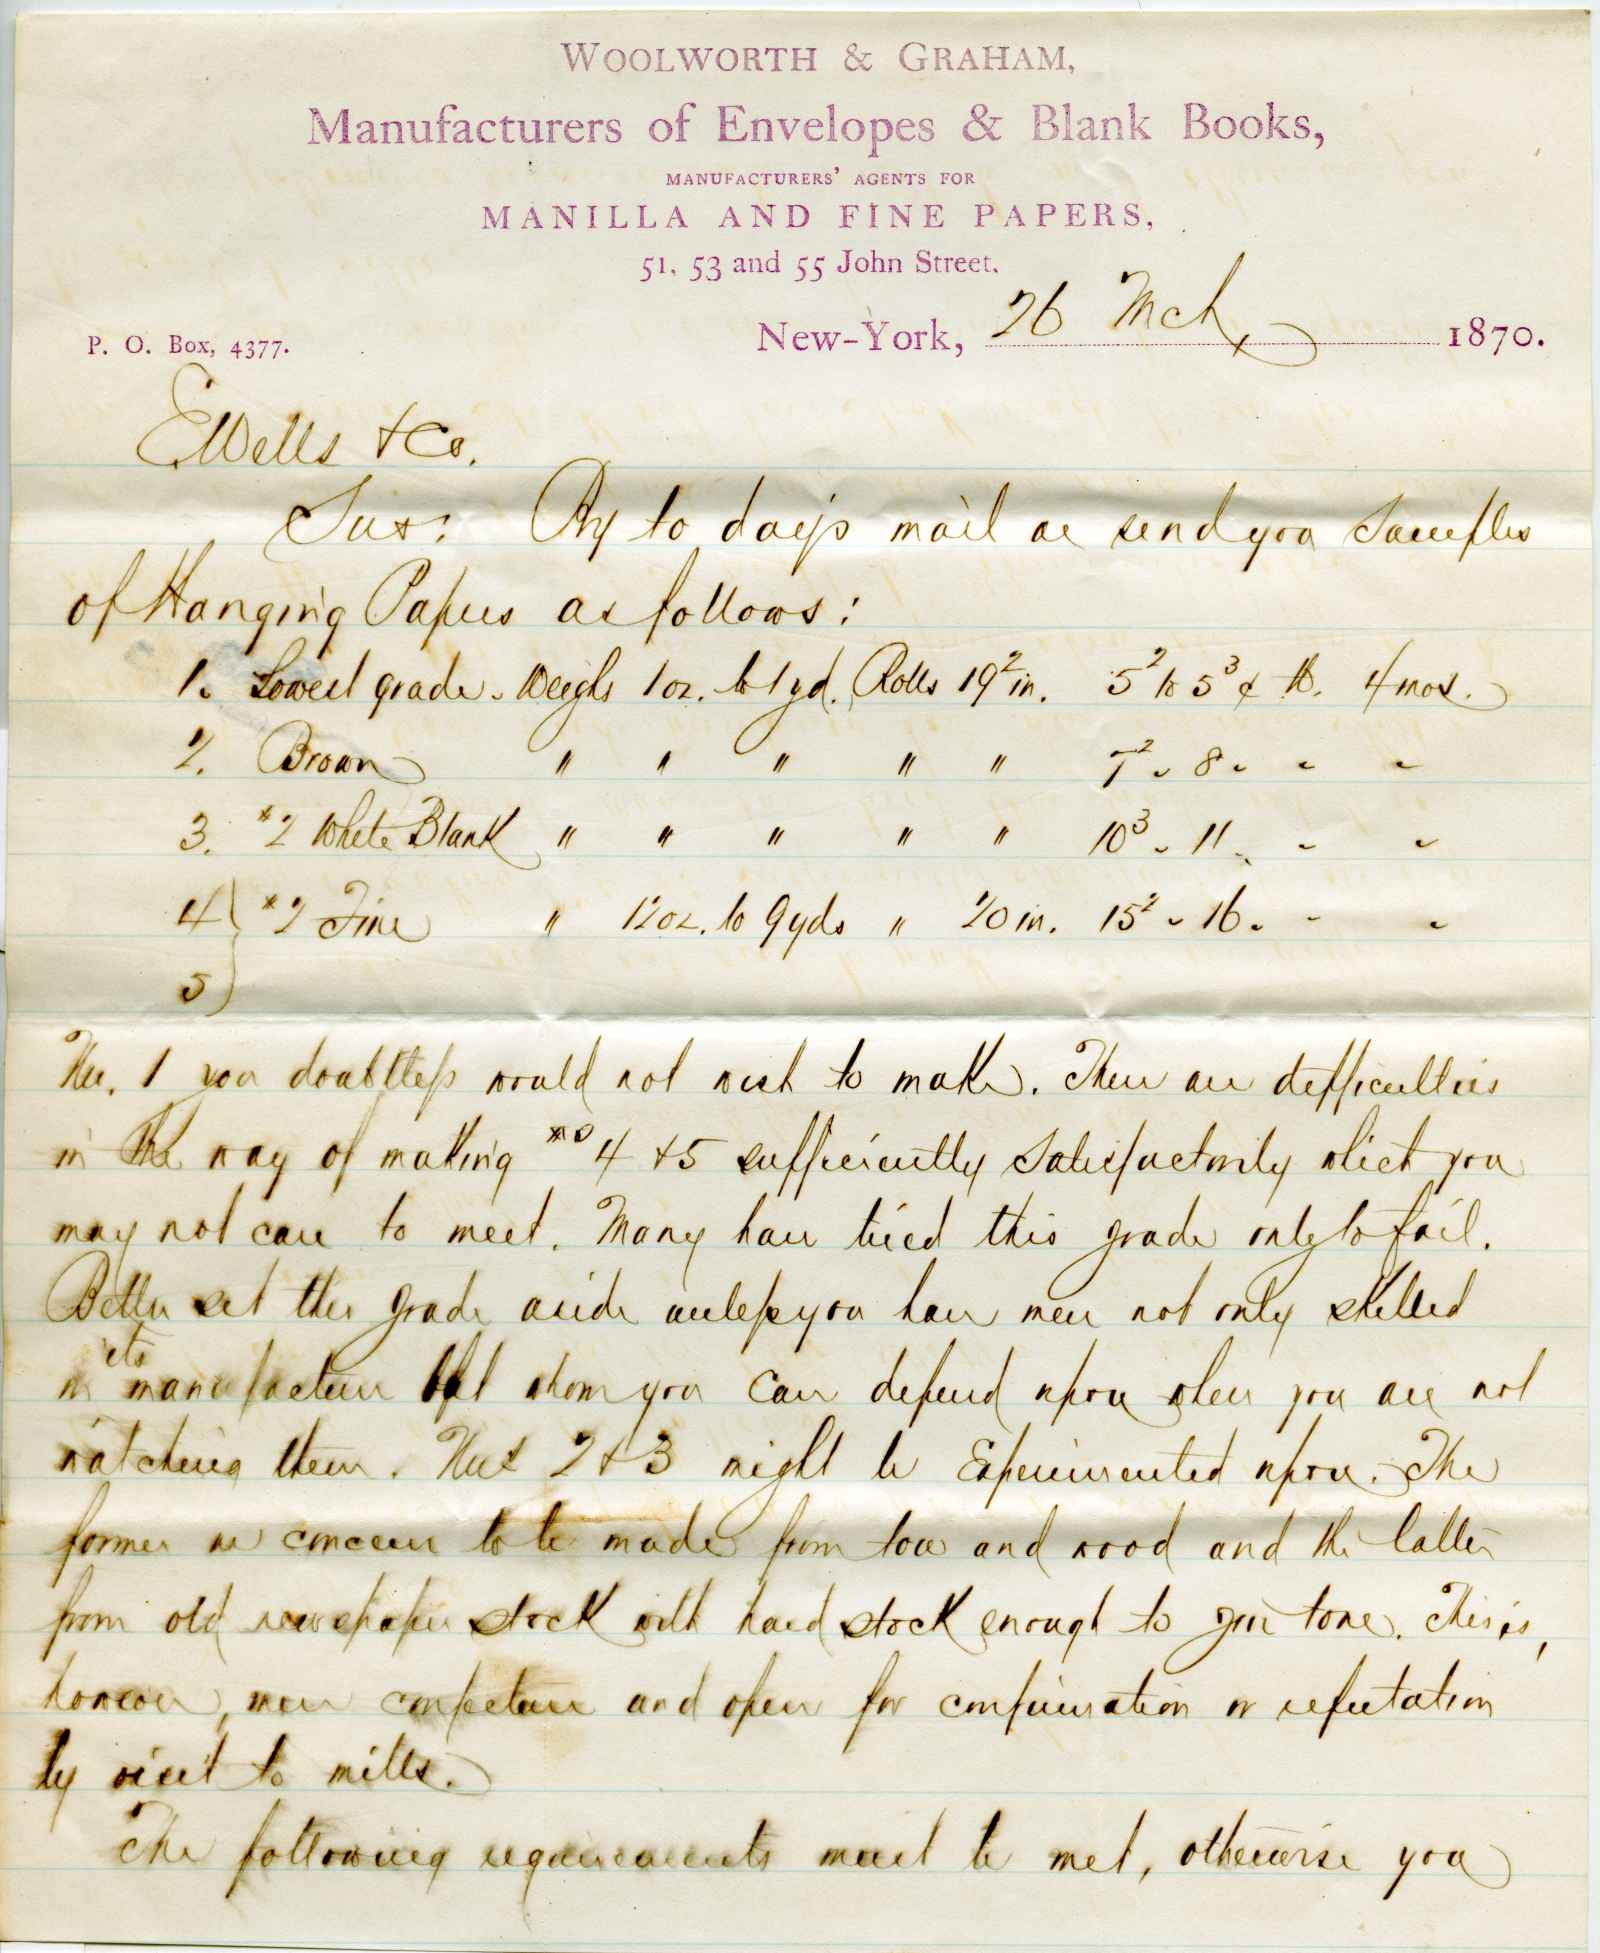 WOOLWORTH & GRAHAM,
Manufacturers of Envelopes & Blank Books,
MANUFACTURERS' AGENTS FOR
MANILLA AND FINE PAPERS,
51, 53 and 55 John Street.
P. O. Box, 4377.
New-York, 26 Mch, 1870.
E Wells & Co.
Sirs: By to day's mail we send you Samples
of Hanging Papers as follows:
1. Lowest grade. Weighs 1 oz. to 1 yd. Rolls 19² in. 5² to 5³ ¢ lb. 4 mos.
2. Brown " " " " " 7² " 8 " " "
3. #2 White Blank " " " " " 10³ " 11 " " "
4 } #2 Fine " 12 oz. to 9 yds " 20 in. 15² " 16 " " "
5 }
No. 1 you doubtless would not wish to make. There are difficulties
in the way of making nos 4 & 5 sufficiently satisfactorily which you
may not care to meet. Many have tried this grade only to fail.
Better set this grade aside unless you have men not only skilled
in its manufacture but whom you can depend upon when you are not
watching them. Nos 2 & 3 might be Experimented upon. The
former we concieve to be made from tow and wood and the latter
from old newspaper stock with hard stock enough to give tone. This is,
however, mere conjecture and open for confirmation or refutation
by visit to mills.
The following requirements must be met, otherwise you